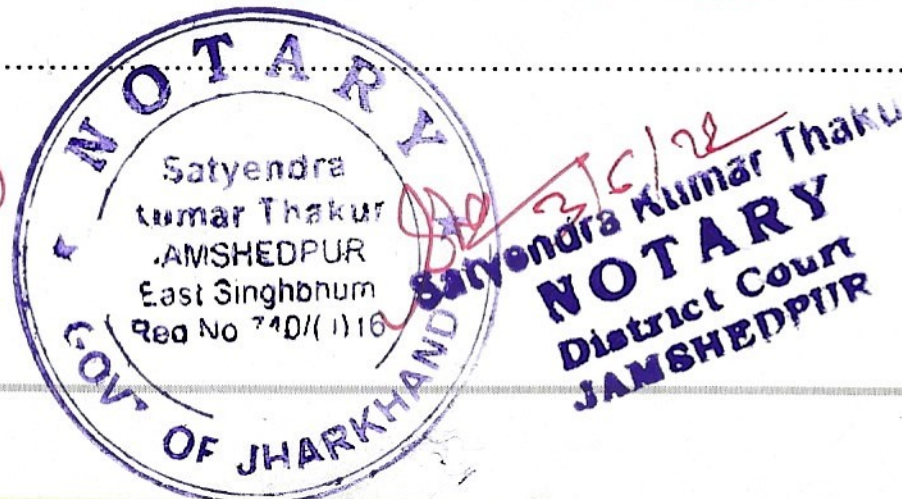 NOTARY
Satyendra
kumar Thakur
JAMSHEDPUR
East Singhbhum
Reg No
GOVT OF JHARKHAND
3/6/22
Satyendra Kumar Thaku
NOTARY
District Court
JAMSHEDPUR